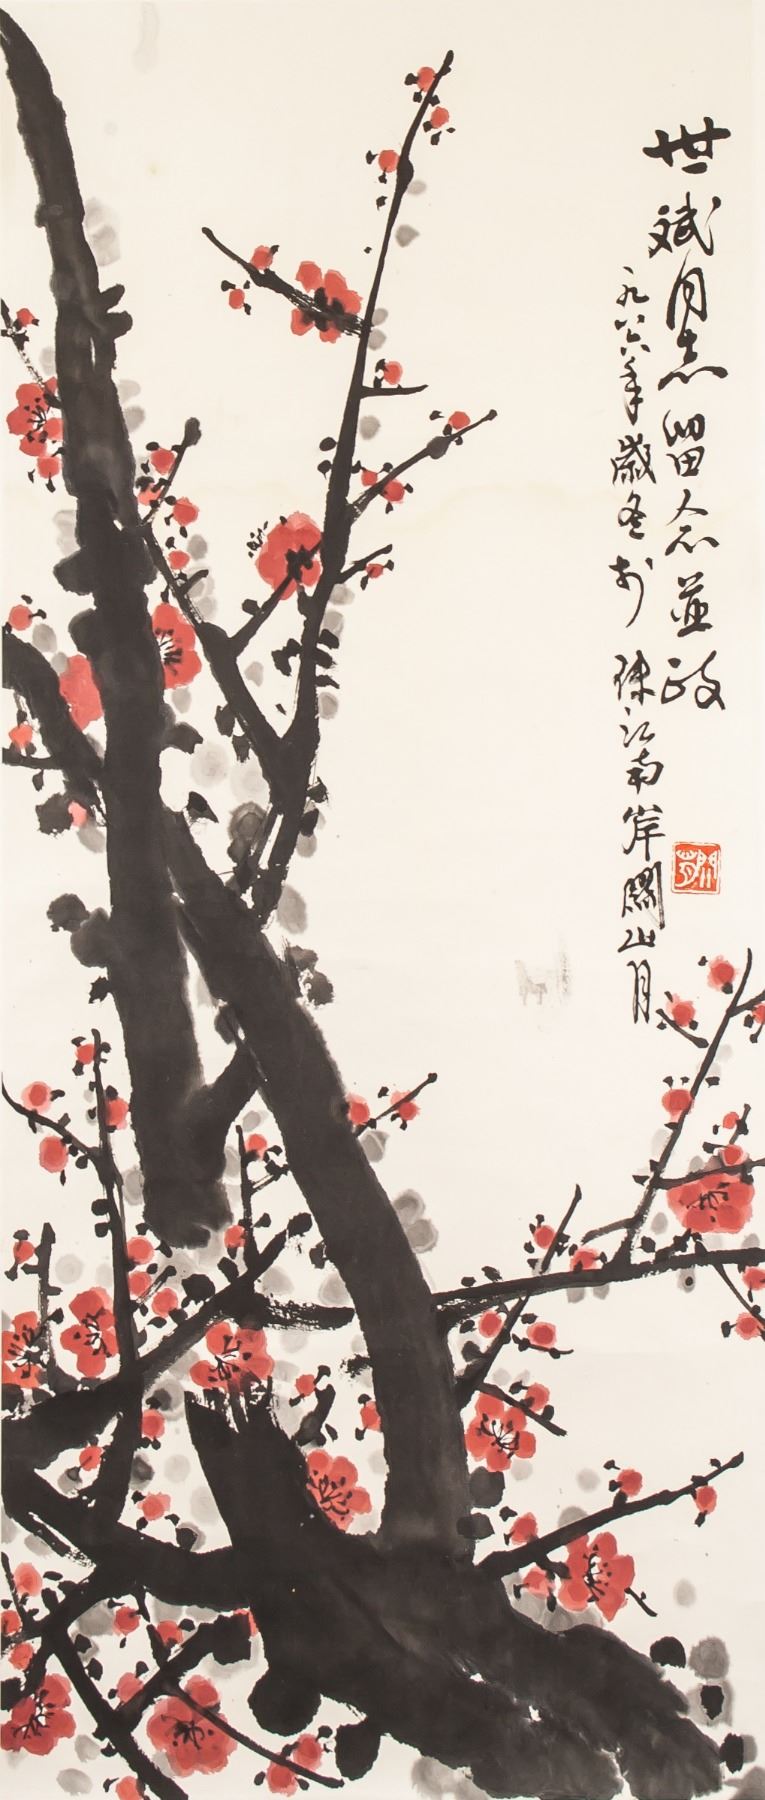 世斌同志留念並政
一九八六年歲冬於珠江南岸關山月
關